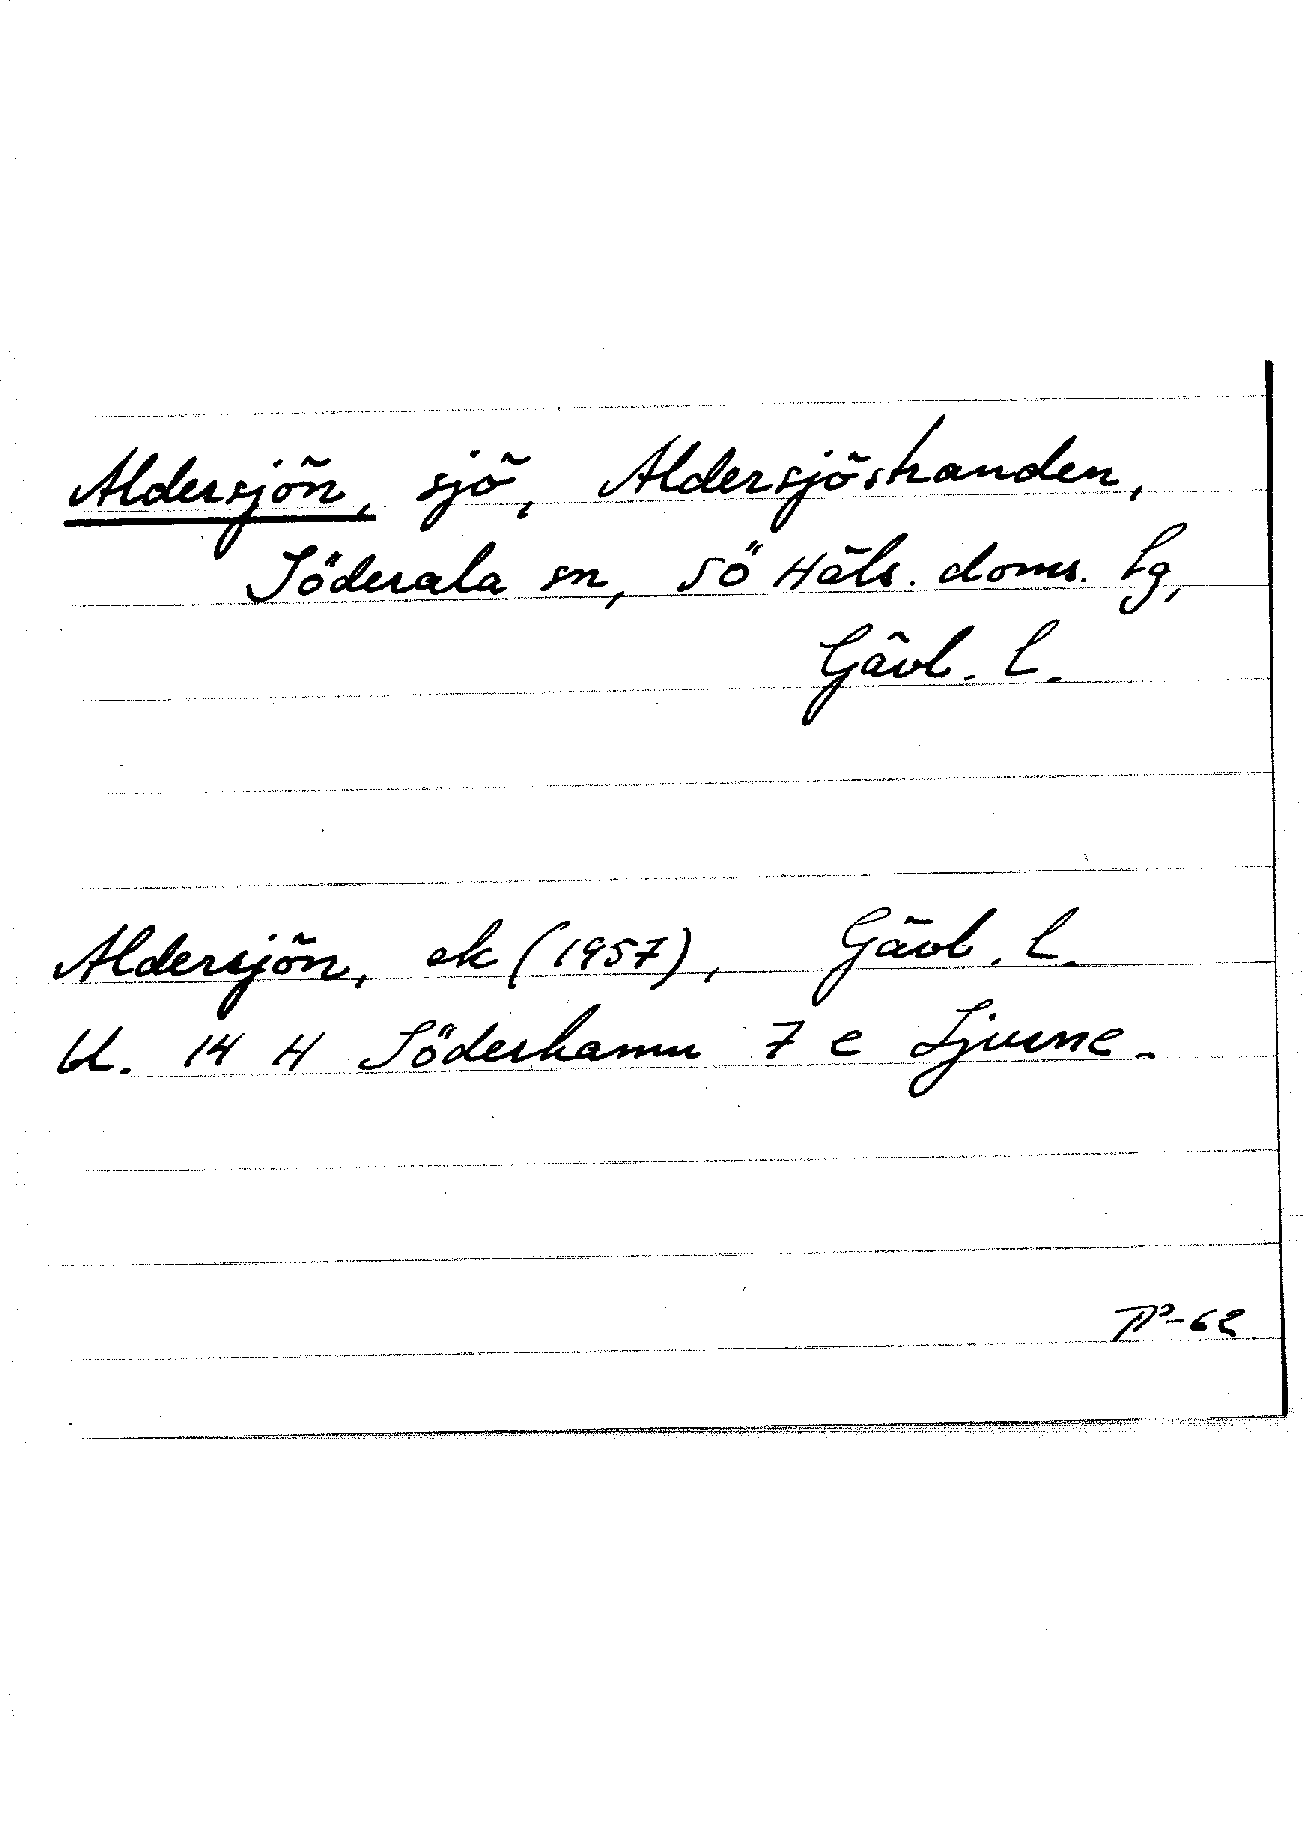 Aldersjön, sjö, Aldersjöstranden,
Söderala sn, Sö Häls. doms. lg,
Gävl. l.
Aldersjön, ek (1957), Gävl. l.
bl. 14 H Söderhamn 7 e Ljusne.
-62